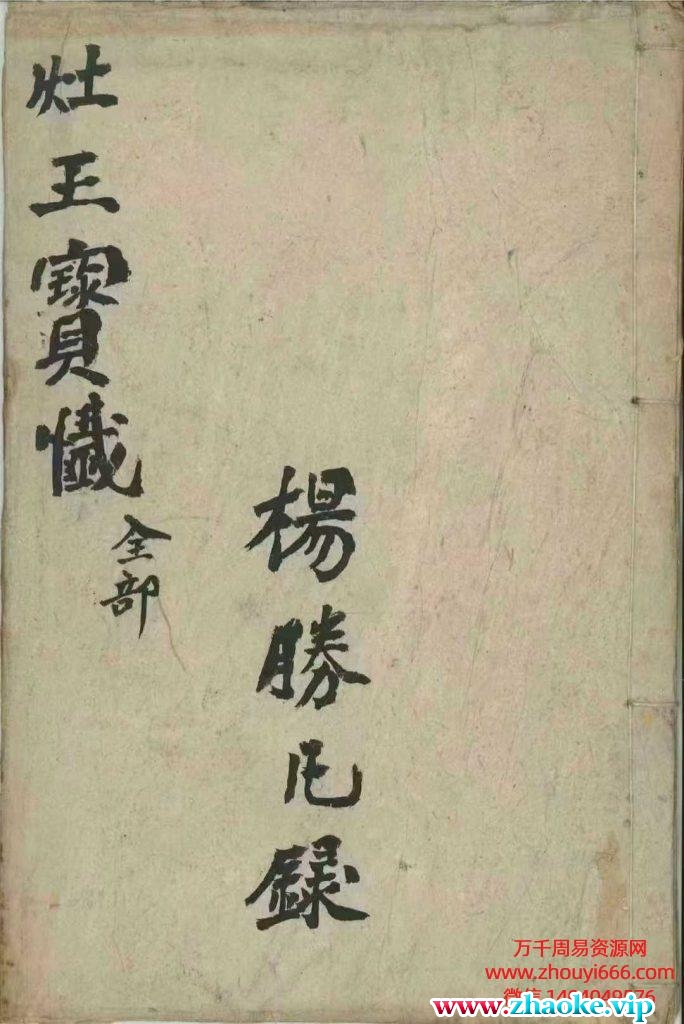 灶王寶懺
全部
楊勝錄
万千周易资源网
www.zhouyi666.com
微信
www.zhaoke.vip